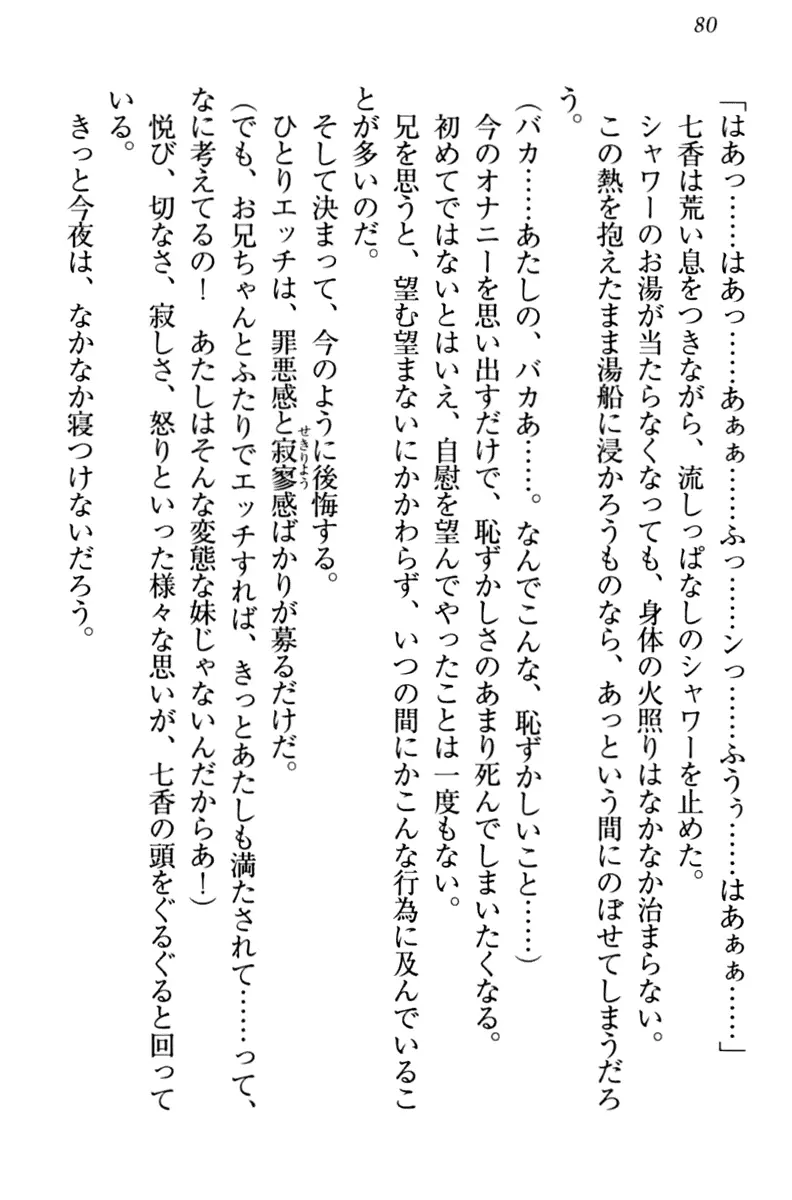 80
「はあっ……はあっ……あぁぁ……ふっ……ンっ……ふうぅ……はあぁぁ……」
七香は荒い息をつきながら、流しっぱなしのシャワーを止めた。
シャワーのお湯が当たらなくなっても、身体の火照りはなかなか治まらない。
この熱を抱えたまま湯船に浸かろうものなら、あっという間にのぼせてしまうだろ
う。
（バカ……あたしの、バカあ……。なんでこんな、恥ずかしいこと……）
今のオナニーを思い出すだけで、恥ずかしさのあまり死んでしまいたくなる。
初めてではないとはいえ、自慰を望んでやったことは一度もない。
兄を思うと、望む望まないにかかわらず、いつの間にかこんな行為に及んでいるこ
とが多いのだ。
そして決まって、今のように後悔する。
ひとりエッチは、罪悪感と寂寥感ばかりが募るだけだ。
せきりょう
（でも、お兄ちゃんとふたりでエッチすれば、きっとあたしも満たされて……って、
なに考えてるの！　あたしはそんな変態な妹じゃないんだからあ！）
悦び、切なさ、寂しさ、怒りといった様々な思いが、七香の頭をぐるぐると回って
いる。
きっと今夜は、なかなか寝つけないだろう。